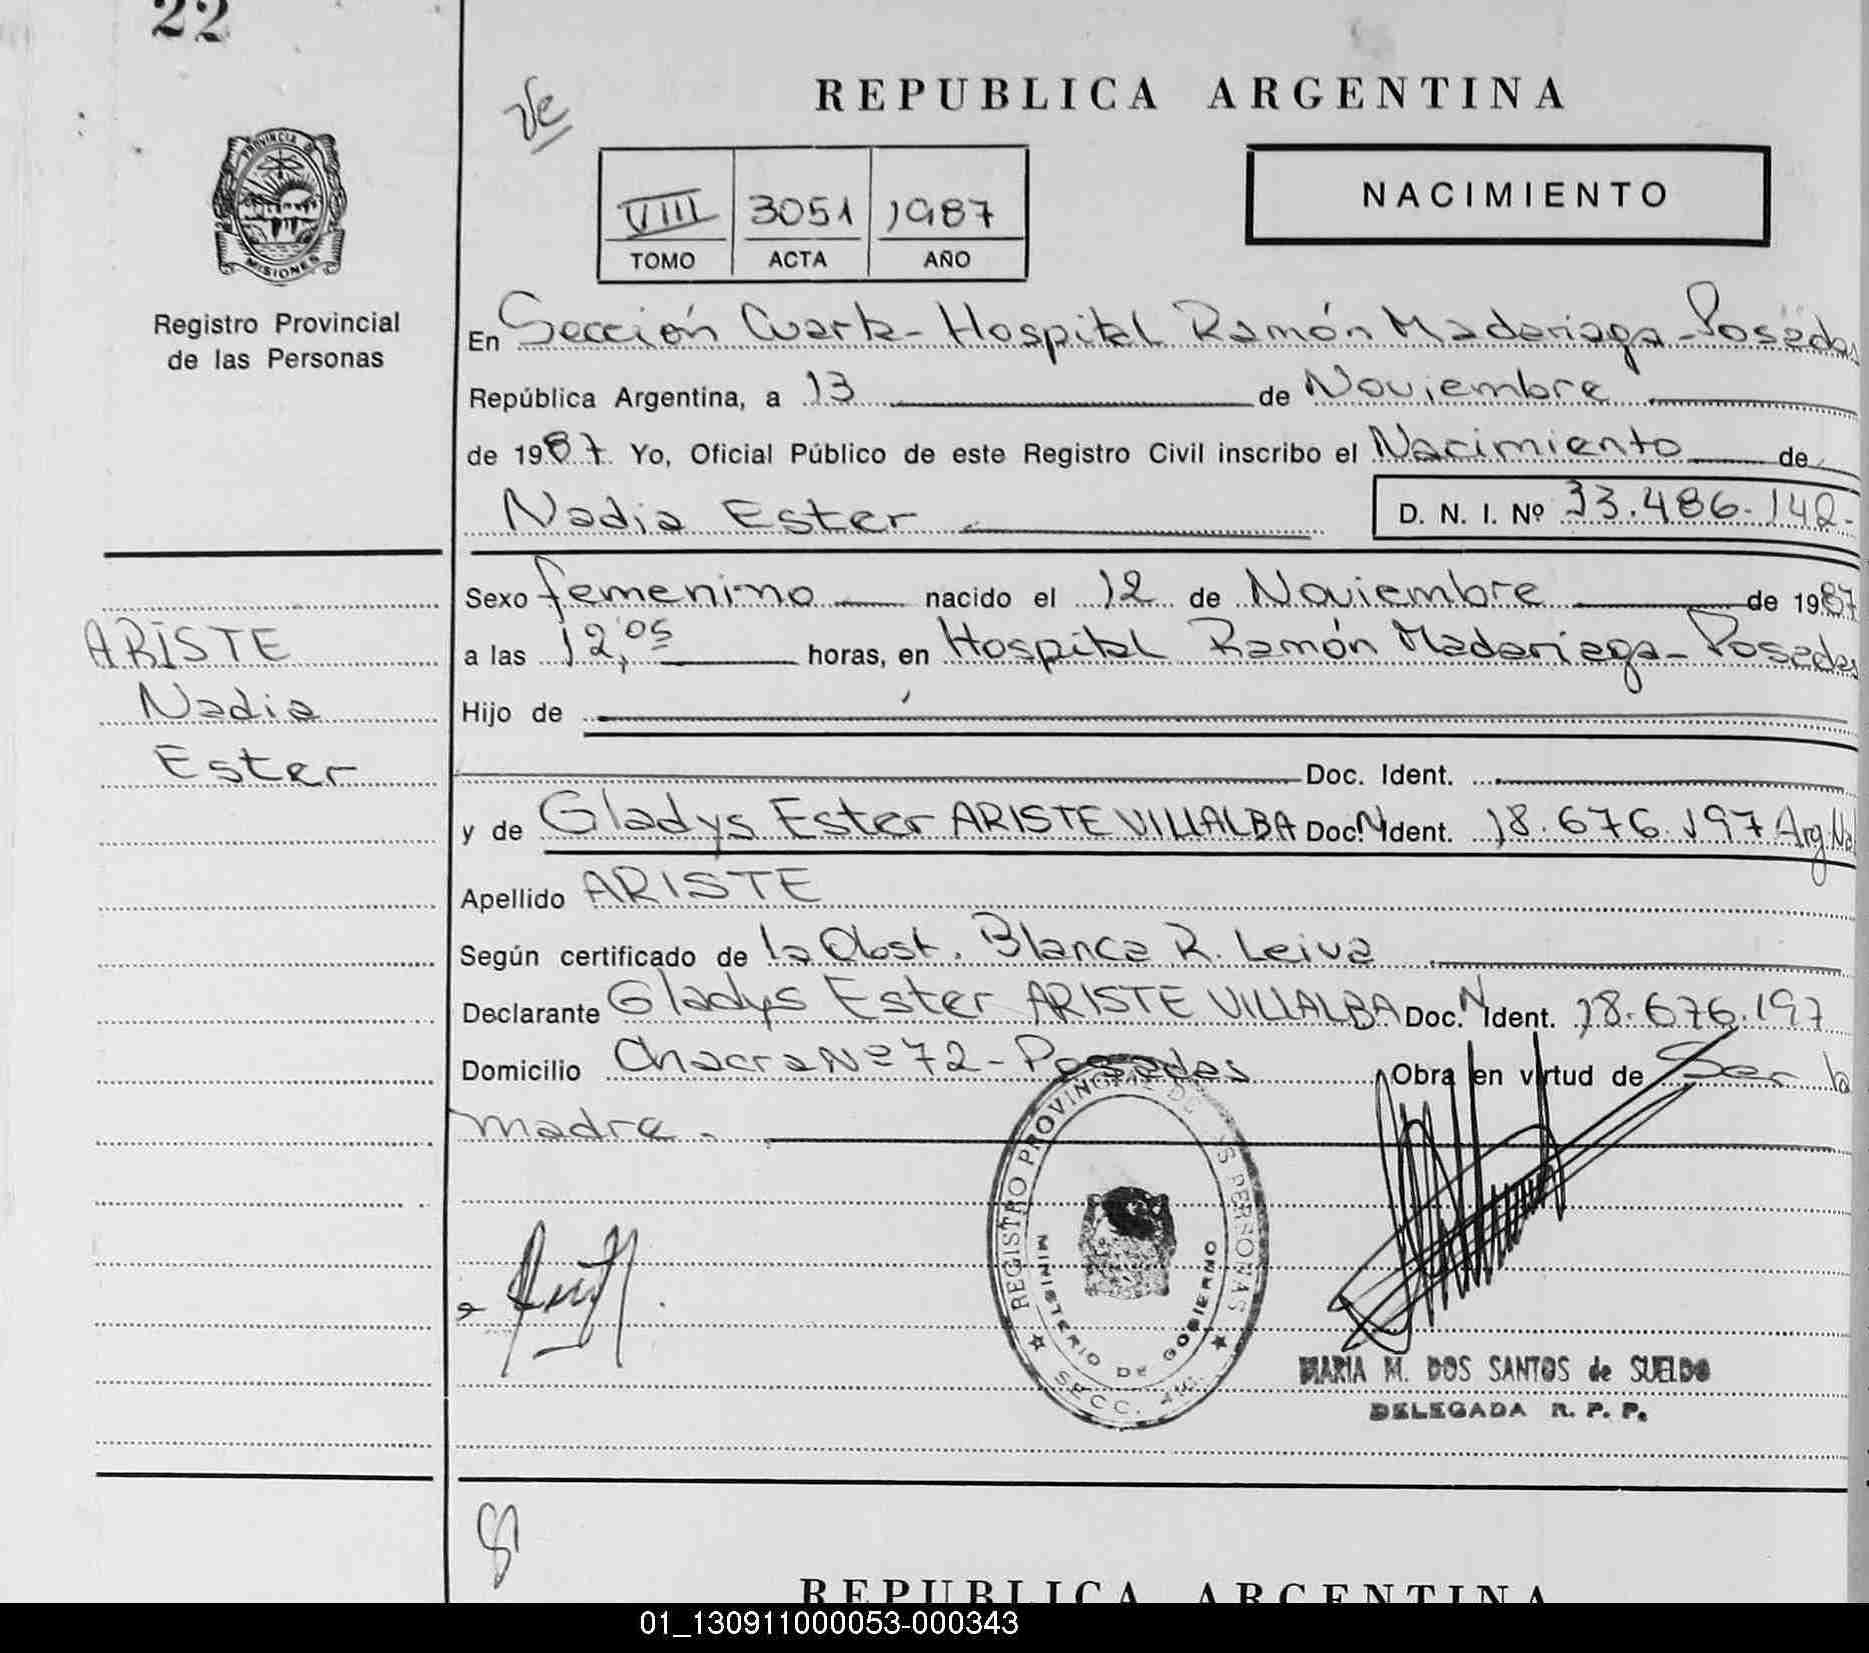 22
REPUBLICA ARGENTINA
PROVINCIA DE
MISIONES
Registro Provincial
de las Personas
VIII 3051 1987
TOMO ACTA AÑO
NACIMIENTO
En Sección Cuarta - Hospital Ramón Madariaga - Posadas
República Argentina, a 13 de Noviembre
de 1987 Yo, Oficial Público de este Registro Civil inscribo el Nacimiento de
Nadia Ester D. N. I. Nº 33.486.142.-
Sexo femenino nacido el 12 de Noviembre de 1987
ARISTE
Nadia
Ester
a las 12,05 horas, en Hospital Ramón Madariaga - Posadas
Hijo de
Doc. Ident.
y de Gladys Ester ARISTE VILLALBA Doc. N Ident. 18.676.197 Arg. Na
Apellido ARISTE
Según certificado de la Obst. Blanca R. Leiva
Declarante Gladys Ester ARISTE VILLALBA Doc. N Ident. 18.676.197
Domicilio Chacra Nº 72 - Posadas Obra en virtud de Ser la
madre.
REGISTRO PROVINCIAL DE LAS PERSONAS
MINISTERIO DE GOBIERNO
SECC.
MARIA M. DOS SANTOS de SUELDO
DELEGADA R. P. P.
REPUBLICA ARGENTINA
01_130911000053-000343